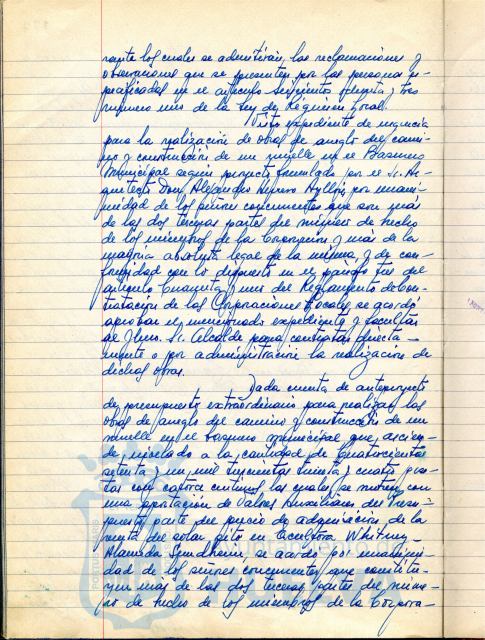 rante los cuales se admitirán, las reclamaciones y
observaciones que se presenten por las personas es-
pecificadas en el artículo seiscientos ochenta y tres
número uno de la Ley de Régimen Local.
Visto expediente de urgencia
para la realización de obras de arreglo del cami-
no y construcción de un muelle en el Basurero
Municipal según proyecto formulado por el Sr. Ar-
quitecto Don Alejandro Herrero Ayllón por unani-
midad de los señores concurrentes que son más
de las dos terceras partes del número de hecho
de los miembros de la Corporación y más de la
mayoría absoluta legal de la misma, y de con-
formidad con lo dispuesto en el párrafo tres del
artículo cuarenta y uno del Reglamento de Con-
tratación de las Corporaciones Locales se acordó
aprobar el mencionado expediente y facultar
al Ilmo. Sr. Alcalde para contratar directa-
mente o por administración la realización de
dichas obras.
Dada cuenta de anteproyecto
de presupuesto extraordinario para realizar las
obras de arreglo del camino y construcción de un
muelle en el basurero municipal que, ascien-
de, nivelado a la cantidad de cuatrocientas
setenta y un mil trescientas treinta y cuatro pese-
tas con catorce céntimos las cuales se nutren con
una aportación de Valores Auxiliares del Presu-
puesto parte del precio de adquisición de la
venta del solar sito en Escultora Whitney-
Alameda Sundheim se acordó por unanimi-
dad de los señores concurrentes que constitu-
yen más de las dos terceras partes del núme-
ro de hecho de los miembros de la Corpora-